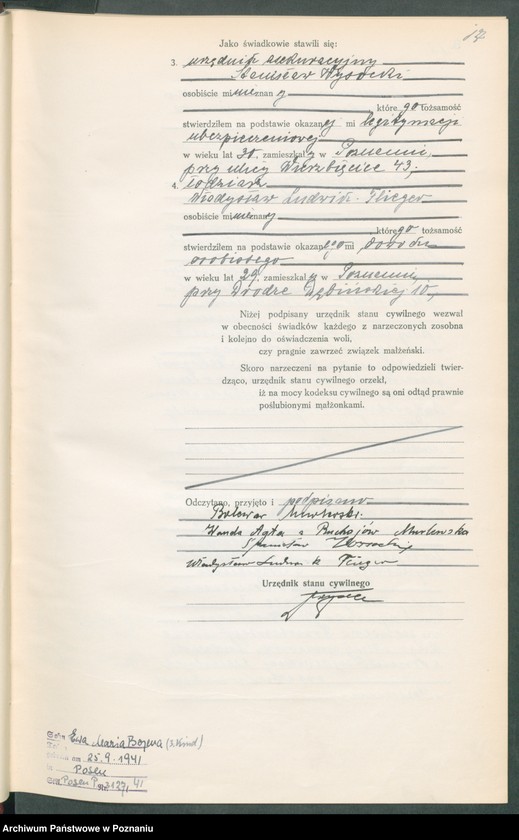 17
Jako świadkowie stawili się:
3. urzędnik asekuracyjny
Stanisław Wysocki
osobiście mi nieznany
które go tożsamość
stwierdziłem na podstawie okazanej mi legitymacji
ubezpieczeniowej
w wieku lat 30, zamieszkały w Poznaniu,
przy ulicy Wierzbięcice 43,
4. łodziarz
Władysław Ludwik Flieger
osobiście mi nieznany
którego tożsamość
stwierdziłem na podstawie okazanego mi dowodu
osobistego
w wieku lat 29, zamieszkały w Poznaniu,
przy Drodze Dębińskiej 10,
Niżej podpisany urzędnik stanu cywilnego wezwał
w obecności świadków każdego z narzeczonych zosobna
i kolejno do oświadczenia woli,
czy pragnie zawrzeć związek małżeński.
Skoro narzeczeni na pytanie to odpowiedzieli twier-
dząco, urzędnik stanu cywilnego orzekł,
iż na mocy kodeksu cywilnego są oni odtąd prawnie
poślubionymi małżonkami.
Odczytano, przyjęto i podpisano
Wanda Agta z
Stanisław
Władysław Ludwik Flieger
Urzędnik stanu cywilnego
Ewa Maria Bożena (3. Kind)
25.9.1941
Posen
Posen
41
Archiwum Państwowe w Poznaniu